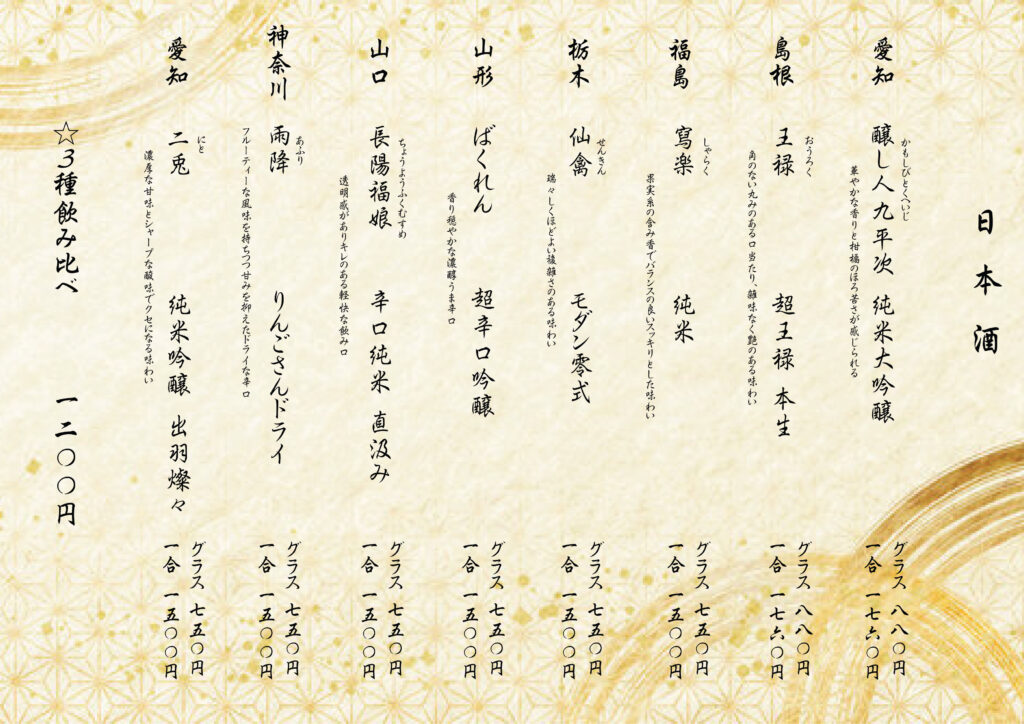 日本酒
愛知
かもしびとくへいじ
醸し人九平次 純米大吟醸
華やかな香りと柑橘のほろ苦さが感じられる
グラス 八八〇円
一合 一七六〇円
島根
おうろく
王祿 超王祿 本生
角のない丸みのある口当たり、雑味なく艶のある味わい
グラス 八八〇円
一合 一七六〇円
福島
しゃらく
寫楽 純米
果実系の含み香でバランスの良いスッキリとした味わい
グラス 七五〇円
一合 一五〇〇円
栃木
せんきん
仙禽 モダン零式
瑞々しくほどよい複雑さのある味わい
グラス 七五〇円
一合 一五〇〇円
山形
ばくれん 超辛口吟醸
香り穏やかな濃醇うま辛口
グラス 七五〇円
一合 一五〇〇円
山口
ちょうようふくむすめ
長陽福娘 辛口純米 直汲み
透明感がありキレのある軽快な飲み口
グラス 七五〇円
一合 一五〇〇円
神奈川
あふり
雨降 りんごさんドライ
フルーティーな風味を持ちつつ甘みを抑えたドライな辛口
グラス 七五〇円
一合 一五〇〇円
愛知
にと
二兎 純米吟醸 出羽燦々
濃厚な甘味とシャープな酸味でクセになる味わい
グラス 七五〇円
一合 一五〇〇円
☆3種飲み比べ 一二〇〇円